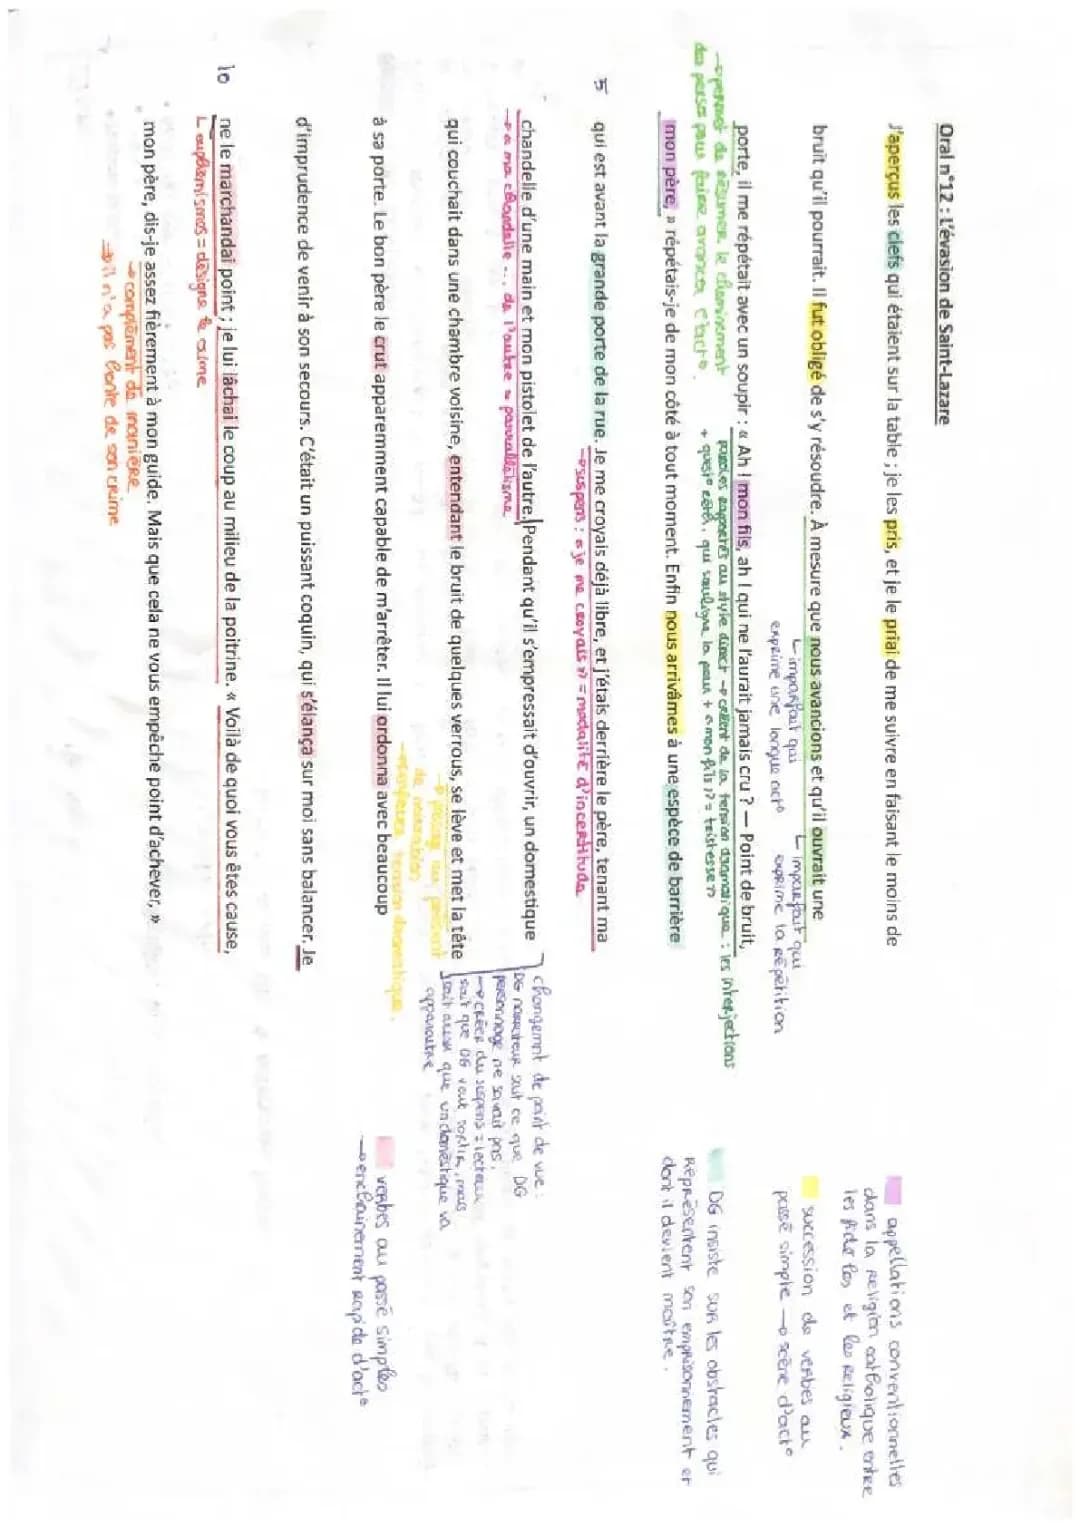 Oral n°12 : L'évasion de Saint-Lazare
J'aperçus les clefs qui étaient sur la table ; je les pris, et je le priai de me suivre en faisant le moins de
bruit qu'il pourrait. Il fut obligé de s'y résoudre. À mesure que nous avancions et qu'il ouvrait une
imparfait qui exprime une longue act°
imparfait qui exprime la répétition
porte, il me répétait avec un soupir : « Ah ! mon fils, ah ! qui ne l'aurait jamais cru ? — Point de bruit,
→ permet de résumer le cheminement des persos pour faire avancer l'act°
paroles rapportés au style direct → créent de la tension dramatique : les interjections
+ quest° rhét. qui souligne la peur + « mon fils !? » = tristesse ??
mon père, » répétais-je de mon côté à tout moment. Enfin nous arrivâmes à une espèce de barrière
5 qui est avant la grande porte de la rue. Je me croyais déjà libre, et j'étais derrière le père, tenant ma
→ suspens : « je me croyais » = modalité d'incertitude
chandelle d'une main et mon pistolet de l'autre. Pendant qu'il s'empressait d'ouvrir, un domestique
→ « ma chandelle ... de l'autre » parrallélisme
qui couchait dans une chambre voisine, entendant le bruit de quelques verrous, se lève et met la tête
→ présent de narration
à sa porte. Le bon père le crut apparemment capable de m'arrêter. Il lui ordonna avec beaucoup
d'imprudence de venir à son secours. C'était un puissant coquin, qui s'élança sur moi sans balancer. Je
10 ne le marchandai point ; je lui lâchai le coup au milieu de la poitrine. « Voilà de quoi vous êtes cause,
euphémismes = désigne le crime
mon père, dis-je assez fièrement à mon guide. Mais que cela ne vous empêche point d'achever, »
→ complément de manière
→ il n'a pas honte de son crime
appellations conventionnelles
dans la religion catholique entre
les fidèles et les religieux.
succession de verbes au
passé simple → scène d'act°
DG insiste sur les obstacles qui
représentent son emprisonnement et
dont il devient maître.
changemnt de point de vue :
DG narrateur sait ce que DG
personnage ne savait pas.
→ créer du suspens : lecteur
sait que DG veut sortir, mais
sait aussi que un domestique va
apparaitre
verbes au passé simples
→ enchainement rapide d'act°